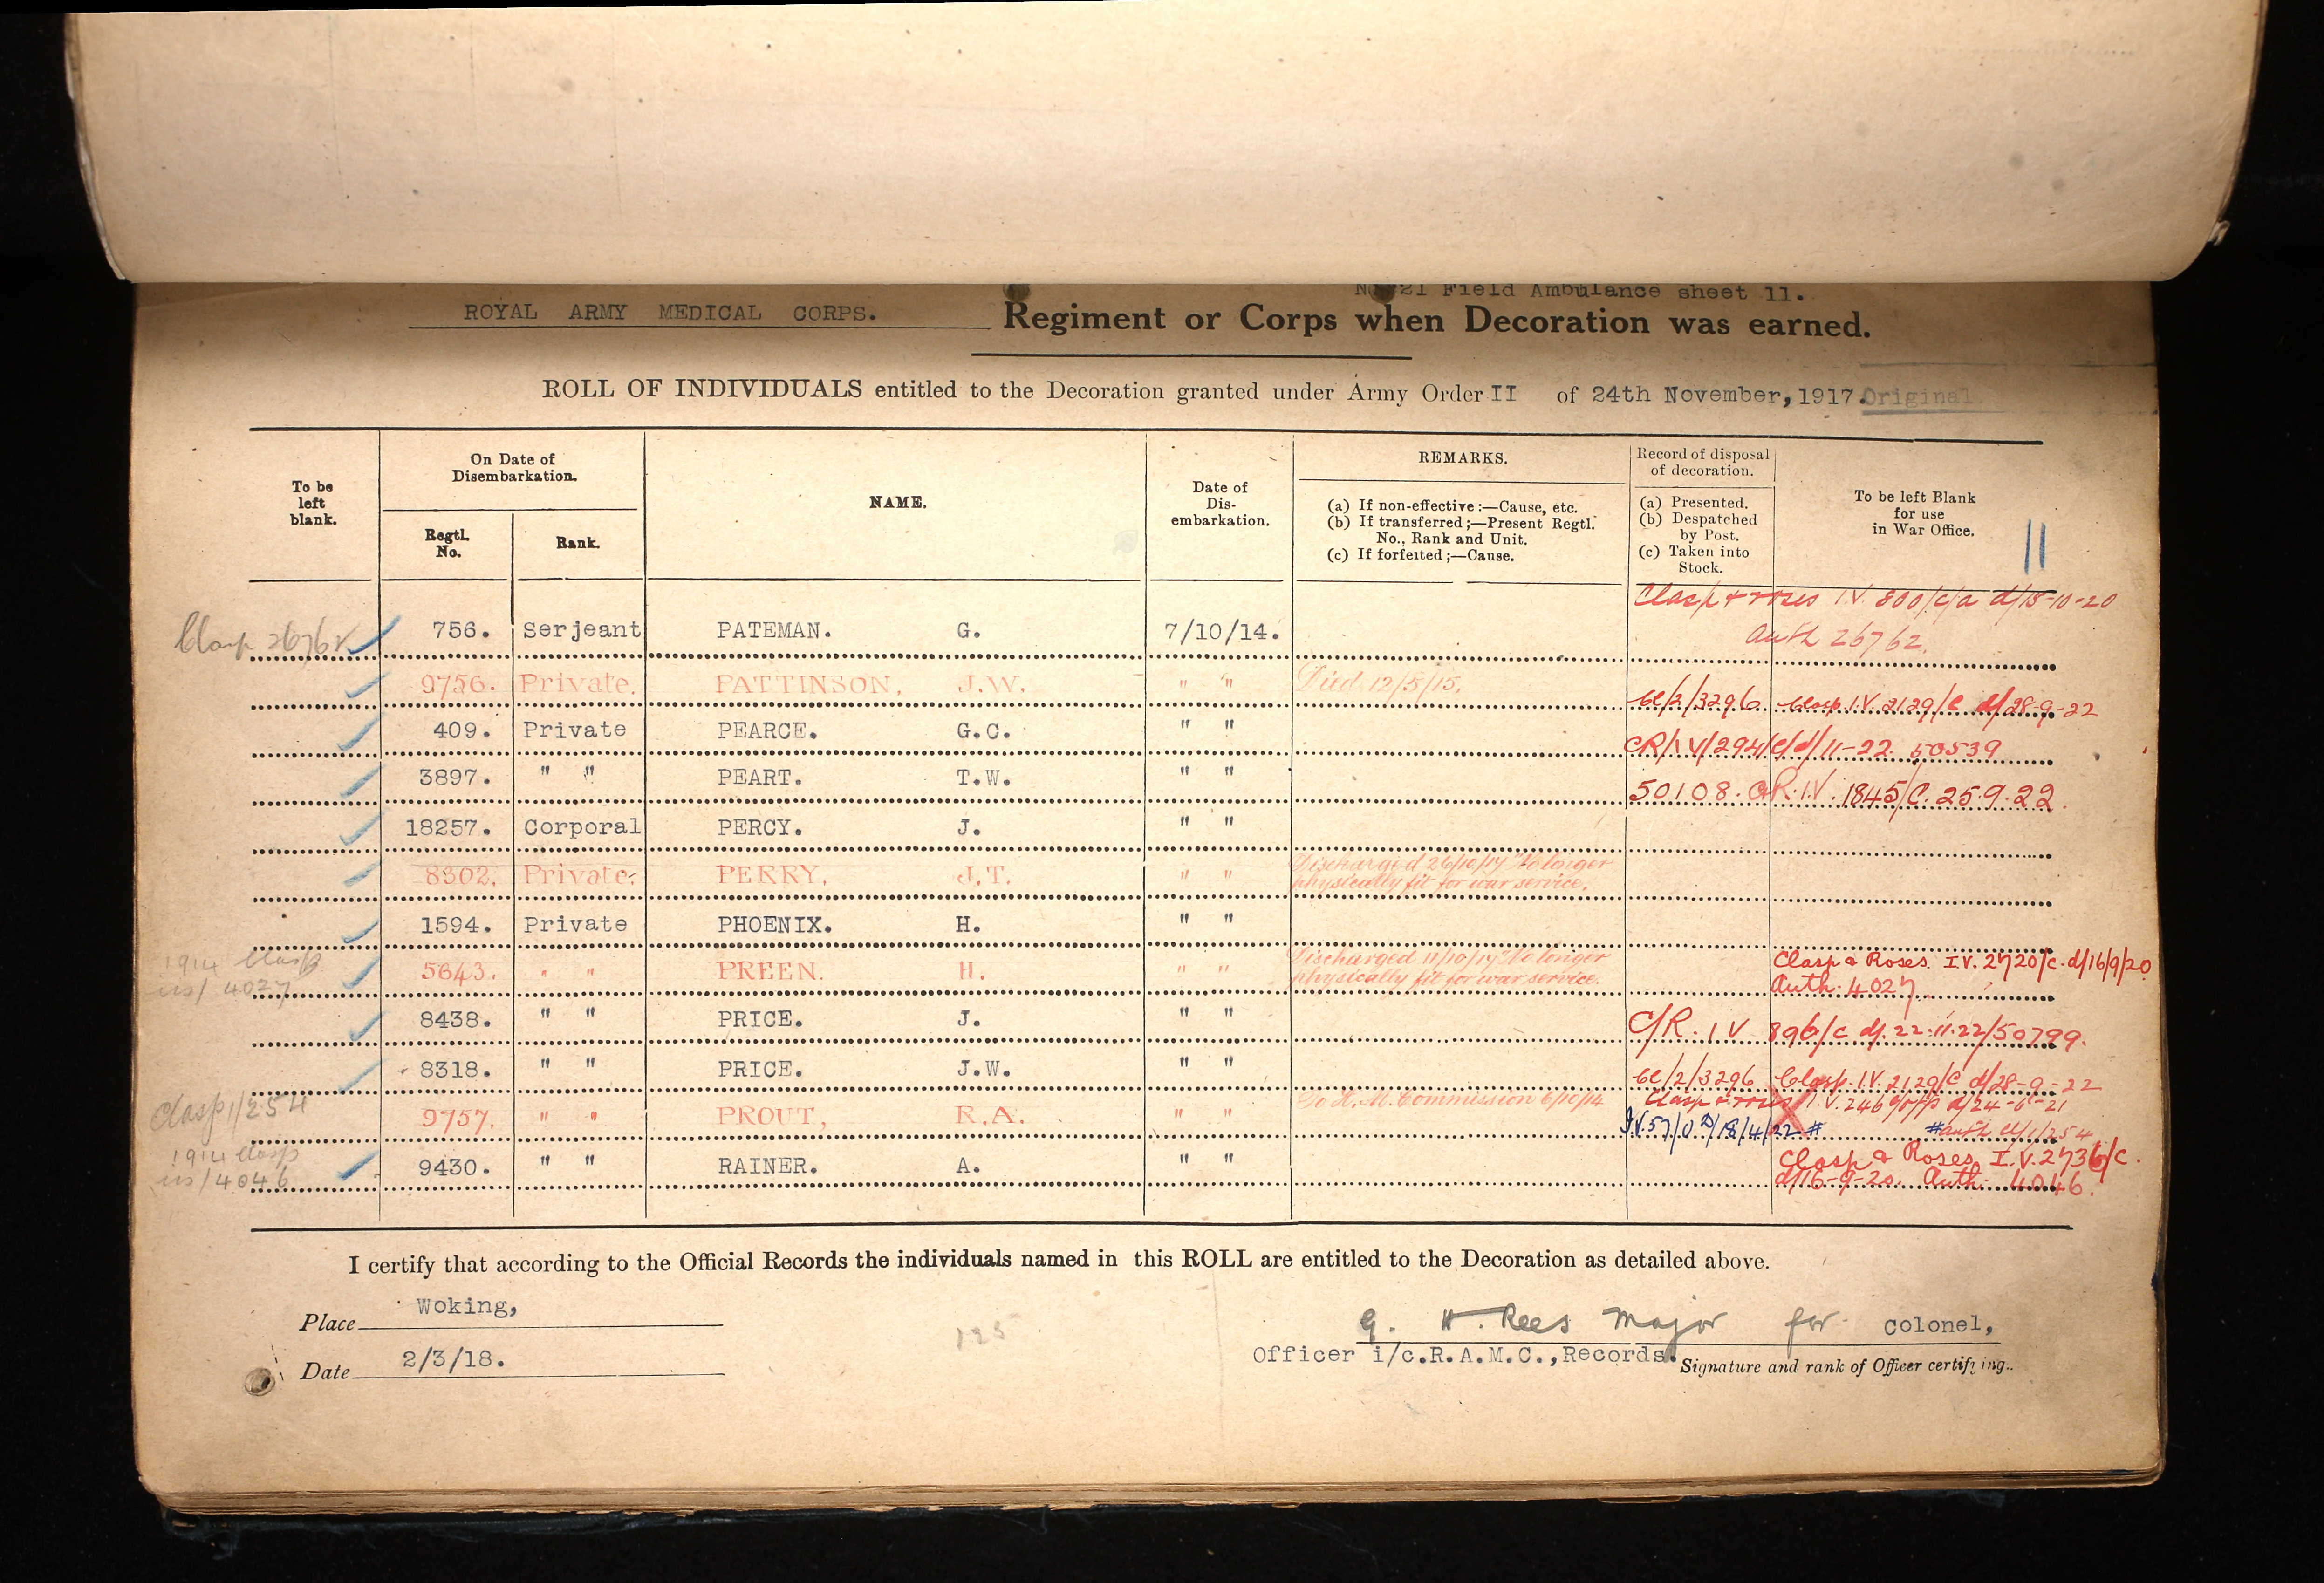 No 21 Field Ambulance sheet 11.
ROYAL ARMY MEDICAL CORPS. Regiment or Corps when Decoration was earned.
ROLL OF INDIVIDUALS entitled to the Decoration granted under Army Order II of 24th November, 1917. Original
To be left blank.
On Date of Disembarkation.
Regtl. No.
Rank.
NAME.
Date of Dis-embarkation.
REMARKS.
(a) If non-effective :—Cause, etc.
(b) If transferred ;—Present Regtl. No., Rank and Unit.
(c) If forfeited ;—Cause.
Record of disposal of decoration.
(a) Presented.
(b) Despatched by Post.
(c) Taken into Stock.
To be left Blank for use in War Office.
11
Clasp & roses I.V. 800/c/a d/18-10-20
Clasp 26762 756. Serjeant PATEMAN. G. 7/10/14. Auth 26762.
9756. Private. PATTINSON, J.W. " " Died 12/5/15. Cl/2/3296 Clasp. I.V. 2129/C d/28-9-22
409. Private PEARCE. G.C. " " CR/IV/294/C/d/11-22. 50539
3897. " " PEART. T.W. " " 50108. CR.I.V. 1845/C. 25.9.22.
18257. Corporal PERCY. J. " "
8302. Private. PERRY, J.T. " " Discharged 26/10/17 "No longer physically fit for war service.
1594. Private PHOENIX. H. " "
1914 Clasp 5643. " " PREEN. H. " " Discharged 11/10/17 "No longer physically fit for war service. Clasp & Roses. IV. 2720/c. d/16/9/20
iis/4027 Auth. 4027
8438. " " PRICE. J. " " C/R. IV 896/c d/. 22.11.22/50799.
8318. " " PRICE. J.W. " " Cl/2/3296 Clasp. I.V. 2129/C d/28-9-22
Clasp 1/254 9757. " " PROUT, R.A. " " To H.M. Commission 6/10/14 Clasp & roses I.V. d/24-6-21
I.V.57/0 18/4/22 # # auth cl/1/254
1914 Clasp 9430. " " RAINER. A. " " Clasp & Roses I.V. 2736/c.
iis/4046 d/16-9-20. Auth. 4046.
I certify that according to the Official Records the individuals named in this ROLL are entitled to the Decoration as detailed above.
Place Woking,
Date 2/3/18.
125
G. H. Rees Major for Colonel,
Officer i/c.R.A.M.C.,Records.
Signature and rank of Officer certifying..